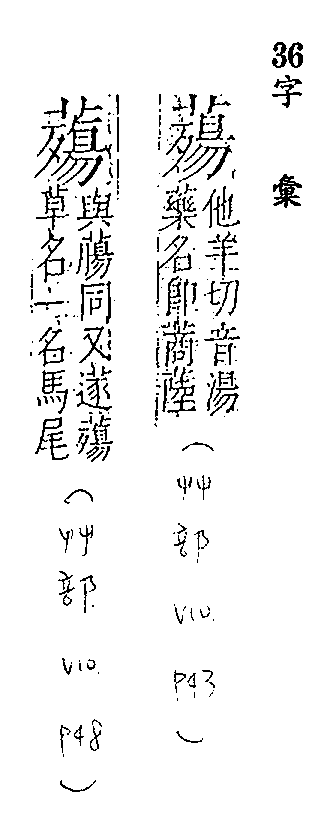 36字彙
薚他羊切音湯
藥名即蔏陸
(艸部 V10. P43)
與同又蓫薚
草名一名馬尾
(艸部 V10. P48)